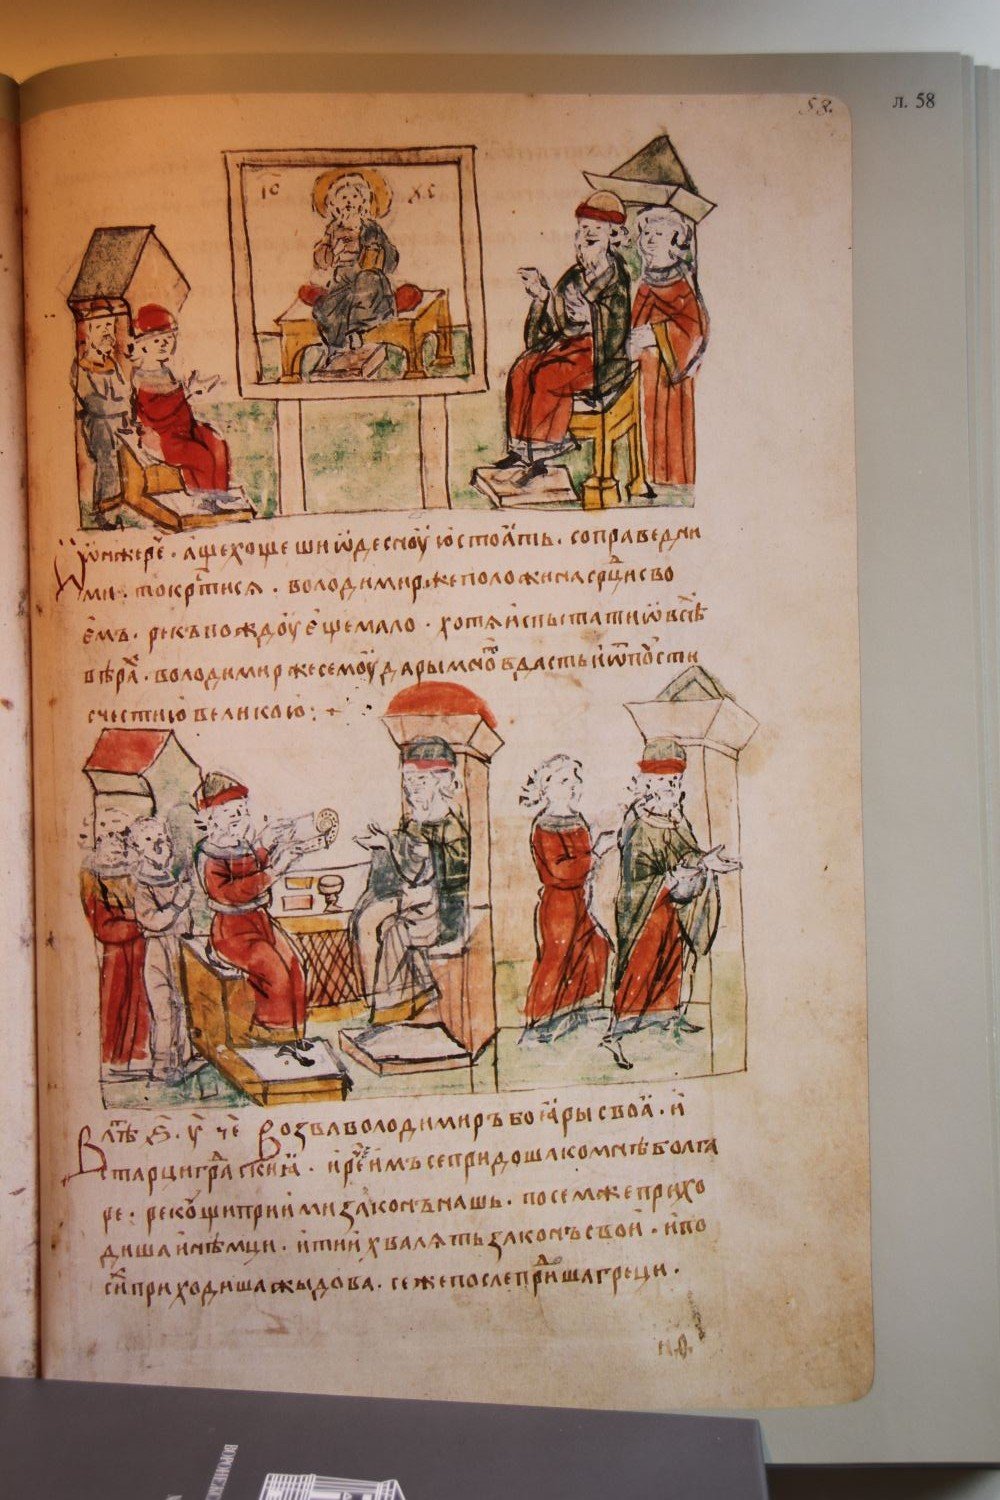 л. 58
58.
ІС ХС
Ѿн же рече · аще хощеши ѡдесноую стоꙗть · со праведни
ми · то крⷭ҇тисѧ · володимир же положи на срⷣци сво
ємъ · рекъ пождоу єще мало · хотѧ испытати ѡ всѣⷯ
вѣраⷯ · володимир же семоу дары мноⷢ҇ вдасть и ѿпоусти
с честию великою :· +
В лѣⷮ ҂ѕ · у҃ ч҃е Возва володимиръ боꙗры своꙗ · и
старци граⷣскиꙗ · и реⷱ҇ имъ се придоша ко мнѣ болга
ре · рекоущи приими законъ нашь · по сем же прихо
диша и нѣмци · и тии хвалѧть законъ свои · и по
сиⷯ приходиша жыдова · се же послѣ приⷣша греци ·
ВОРОНЕЖС